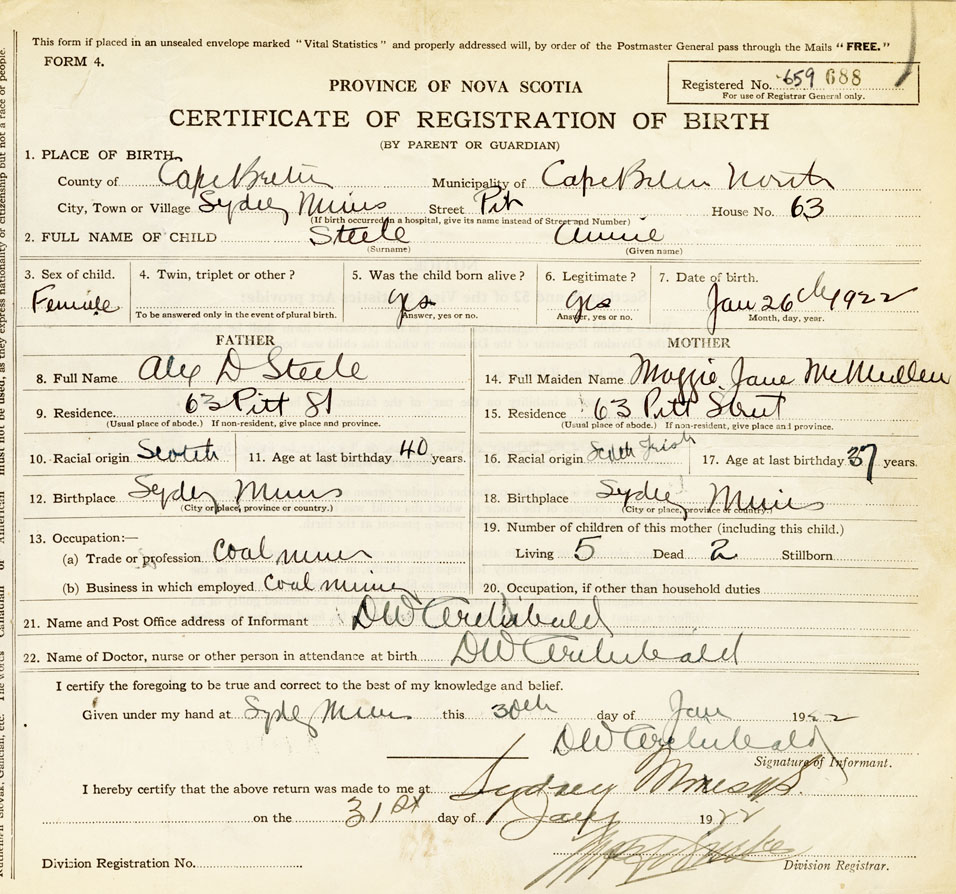 This form if placed in an unsealed envelope marked "Vital Statistics" and properly addressed will, by order of the Postmaster General pass through the Mails "FREE."
FORM 4.
PROVINCE OF NOVA SCOTIA
Registered No. 659 688
For use of Registrar General only.
CERTIFICATE OF REGISTRATION OF BIRTH
(BY PARENT OR GUARDIAN)
1. PLACE OF BIRTH,
County of Cape Breton Municipality of Cape Breton North
City, Town or Village Sydney Mines Street Pitt House No. 63
(If birth occurred in a hospital, give its name instead of Street and Number)
2. FULL NAME OF CHILD Steele Annie
(Surname) (Given name)
3. Sex of child. 4. Twin, triplet or other? 5. Was the child born alive? 6. Legitimate? 7. Date of birth.
Female yes yes Jan 26th 1922
To be answered only in the event of plural birth. Answer, yes or no. Answer, yes or no. Month, day, year.
FATHER
8. Full Name Alex D Steele
9. Residence. 63 Pitt St
(Usual place of abode.) If non-resident, give place and province.
10. Racial origin Scotch 11. Age at last birthday 40 years.
12. Birthplace Sydney Mines
(City or place, province or country.)
13. Occupation:—
(a) Trade or profession Coal miner
(b) Business in which employed Coal mining
MOTHER
14. Full Maiden Name Maggie Jane McMullen
15. Residence 63 Pitt Street
(Usual place of abode.) If non-resident, give place and province.
16. Racial origin Scotch Irish 17. Age at last birthday 37 years.
18. Birthplace Sydney Mines
(City or place, province or country.)
19. Number of children of this mother (including this child.)
Living 5 Dead 2 Stillborn
20. Occupation, if other than household duties
21. Name and Post Office address of Informant DW Archibald
22. Name of Doctor, nurse or other person in attendance at birth DW Archibald
I certify the foregoing to be true and correct to the best of my knowledge and belief.
Given under my hand at Sydney Mines this 30th day of Jan 1922
DW Archibald
Signature of Informant.
I hereby certify that the above return was made to me at Sydney Mines NS.
on the 31st day of Jany 1922
Division Registration No. Division Registrar.